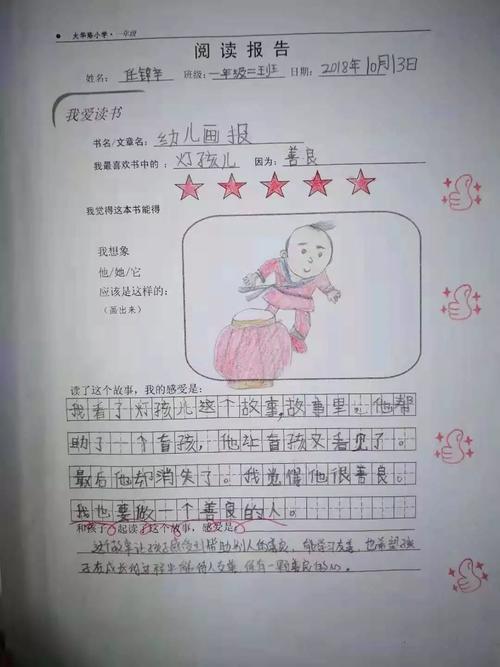 大华路小学·一年级
阅读报告
姓名: 任锦辛 班级: 一年级二班 日期: 2018年10月13日
我爱读书
书名/文章名: 幼儿画报
我最喜欢书中的: 灯孩儿 因为: 善良
我觉得这本书能得
我想象
他/她/它
应该是这样的:
(画出来)
读了这个故事,我的感受是:
我看了灯孩儿这个故事,故事里…他帮
助了一个盲孩,他让盲孩又看见了。
最后他却消失了。我觉得他很善良。
我也要做一个善良的人。
和孩子一起读了这个故事,感受是
这个故事让孩子感受到帮助别人的善良,能学习友善,也希望孩
子在成长的过程中能待人友善,保有一颗善良的心。